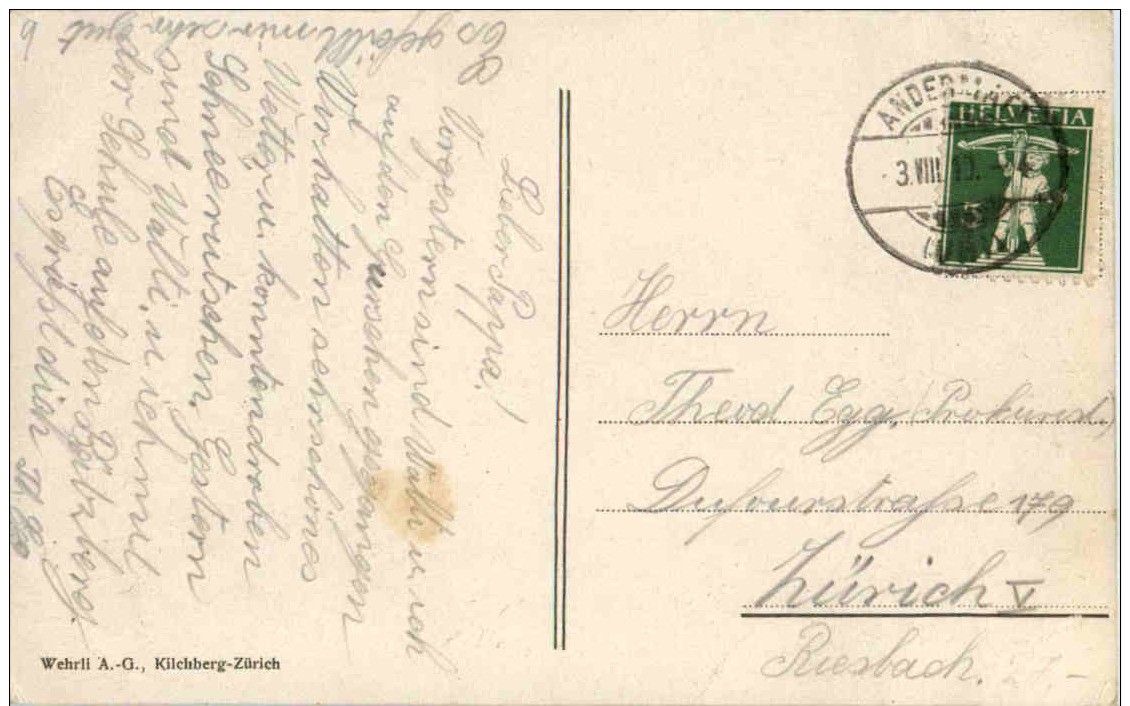 Es gefällt mir sehr gut
Lieber Pappa!
Vorgestern sind Walti u. ich
auf den Gurschen gegangen
Wir hatten sehr schönes
Wetter u. konnten droben
Schneerutschen. Gestern
sind Walti, u ich mit
der Schule auf den Bätzberg.
Es grüsst dich Th. Egg
ANDERMATT
3.VIII.10.
HELVETIA
Herrn
Theod Egg, (Prokurist)
Dufourstrasse 179
Zürich V
Riesbach.
27.-
Wehrli A.-G., Kilchberg-Zürich